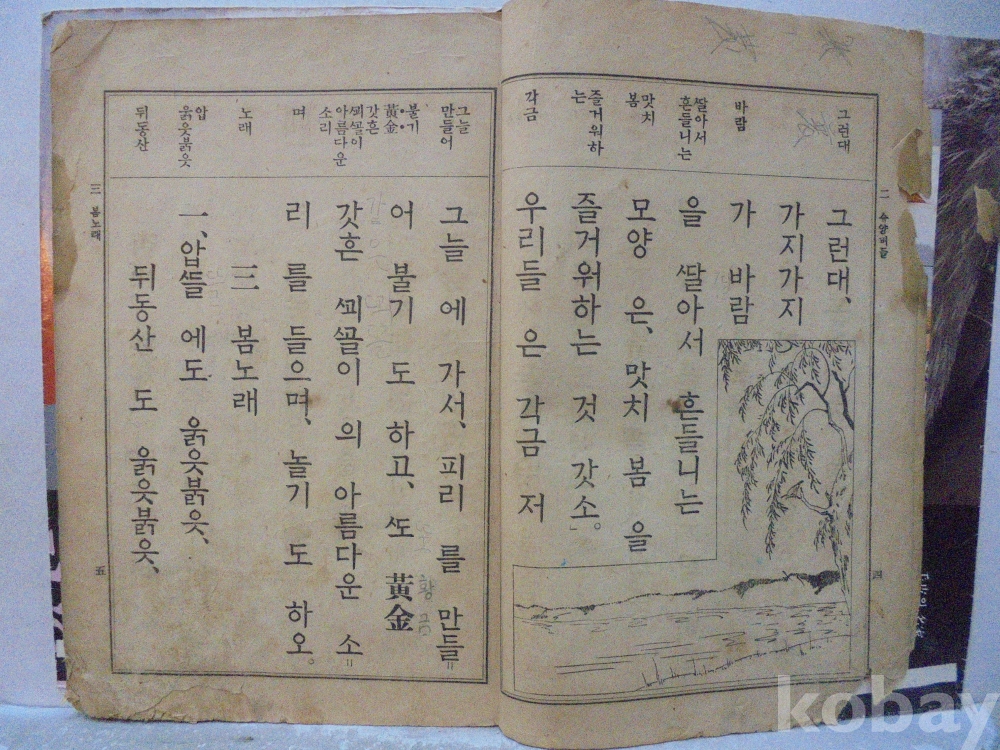 그런대
바람
ᄯᅡᆯ아서
흔들니는
맛치
봄
즐거워하
는
각금
二 슈양버들
그런대,
가지가지
가 바람
을 ᄯᅡᆯ아서 흔들니는
모양 은, 맛치 봄 을
즐거워하는 것 갓소.」
우리들 은 각금 저
四
그늘
만들어
불기
黃金
갓흔
ᄭᅬᄭᅩᆯ이
아름다운
소리
며
노래
압
욹읏붉읏
뒤동산
그늘 에 가서, 피리 를 만들
어 불기 도 하고, ᄯᅩ 黃金
갓흔 ᄭᅬᄭᅩᆯ이 의 아름다운 소
리 를 들으며, 놀기 도 하오.
三 봄노래
一, 압ᄯᅳᆯ 에도 욹읏붉읏,
뒤동산 도 욹읏붉읏,
三 봄노래
五
황금
kobay